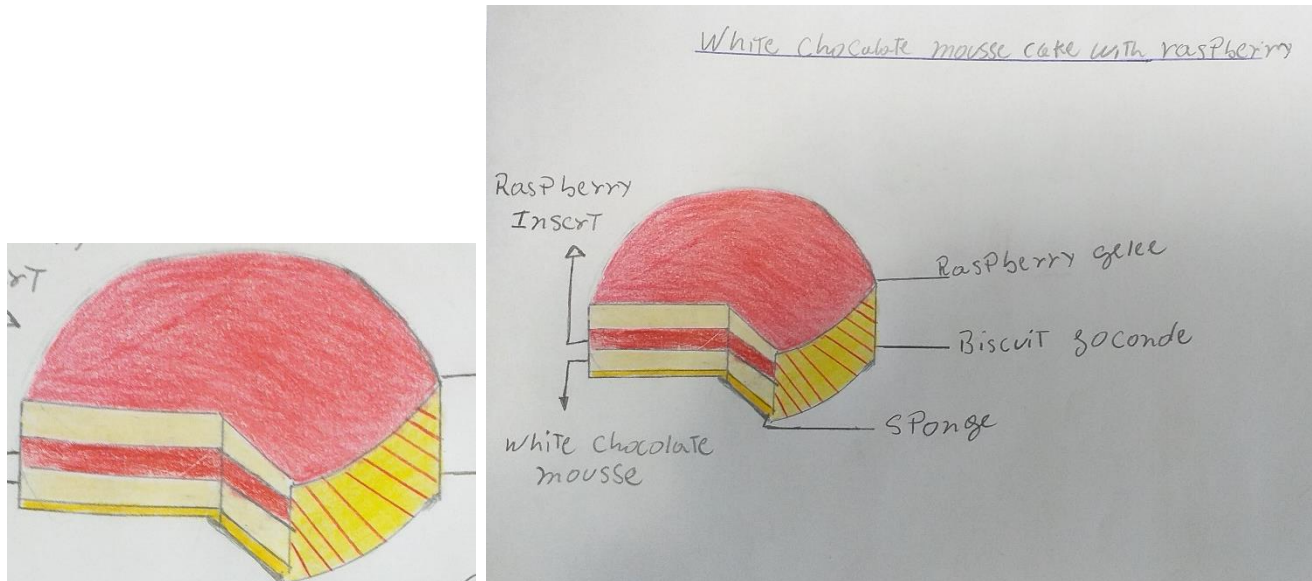 White Chocolate mousse cake with raspberry
Raspberry
Insert
Raspberry gelee
Biscuit Joconde
Sponge
White Chocolate
mousse
rT